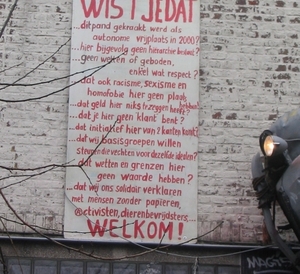 WIST JE DAT
...dit pand gekraakt werd als
autonome vrijplaats in 2000?
...hier bijgevolg geen hiërarchie bestaat?
...geen wetten of geboden,
enkel wat respect?
...dat ook racisme, sexisme en
homofobie hier geen plaats hebben?
...dat geld hier niks te zeggen heeft?
...dat je hier geen klant bent?
...dat initiatief hier van 2 kanten komt?
...dat wij basisgroepen willen
steunen die vechten voor dezelfde idealen?
...dat wetten en grenzen hier
geen waarde hebben?
...dat wij ons solidair verklaren
met mensen zonder papieren,
@ctivisten, dierenbevrijdsters...
WELKOM!